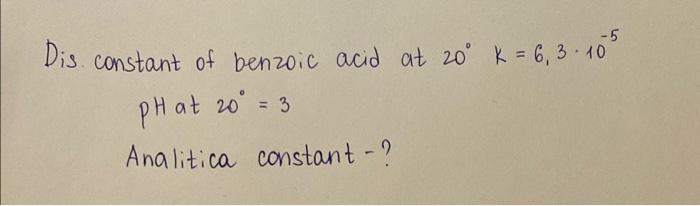 Dis. constant of benzoic acid at 20° K = 6,3 · 10⁻⁵
pH at 20° = 3
Analitica constant - ?